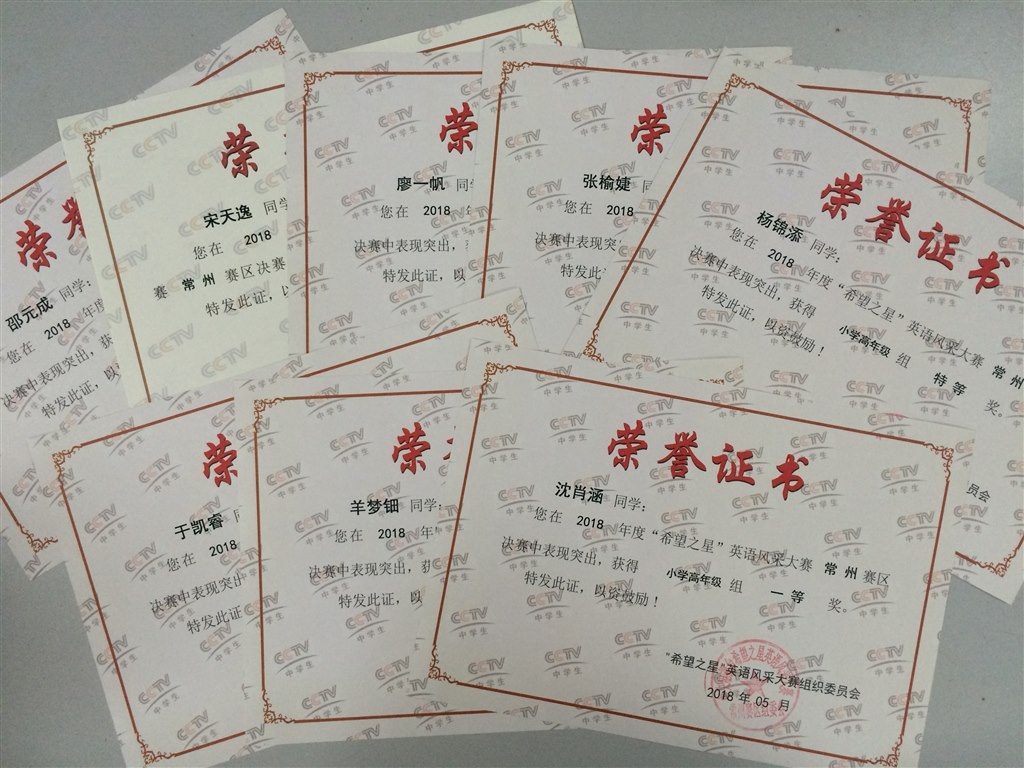 荣
邵元成 同学:
您在 2018 年度
决赛中表现突出，获
特发此证，以
荣
宋天逸 同学
您在 2018
赛 常州 赛区决赛
特发此证，
荣
廖一帆 同
您在 2018
决赛中表现突出，
特发此证，以
荣
张榆婕
您在 2018
决赛中表现突
特发此
荣誉证书
杨锦添 同学:
您在 2018 年度“希望之星”英语风采大赛 常州
决赛中表现突出，获得 小学高年级 组 特等 奖。
特发此证，以资鼓励！
员会
荣
于凯睿
您在 2018
决赛中表现突出
特发此证
荣
羊梦钿 同学:
您在 2018 年
决赛中表现突出，获
特发此证，以
荣誉证书
沈肖涵 同学:
您在 2018 年度“希望之星”英语风采大赛 常州 赛区
决赛中表现突出，获得 小学高年级 组 一等 奖。
特发此证，以资鼓励！
“希望之星”英语风采大赛组织委员会
2018 年 05 月
CCTV
中学生